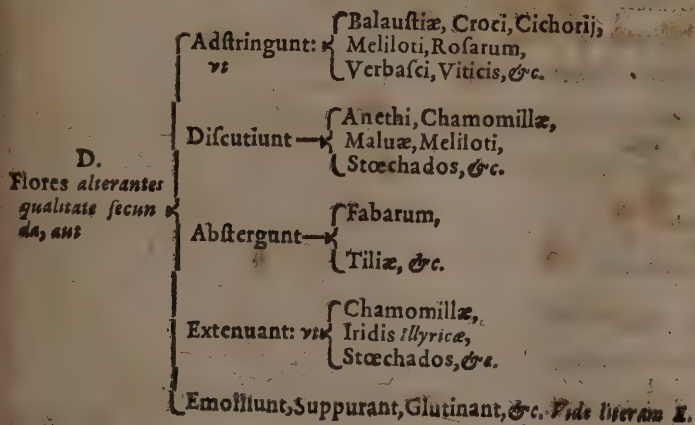 D.
Flores alterantes
qualitate ſecun
da, aut
Adſtringunt:
vt
Balauſtiæ, Croci, Cichorij,
Meliloti, Roſarum,
Verbaſci, Viticis, &c.
Diſcutiunt
Anethi, Chamomillæ,
Maluæ, Meliloti,
Stœchados, &c.
Abſtergunt
Fabarum,
Tiliæ, &c.
Extenuant: vt
Chamomillæ,
Iridis Illyricæ,
Stœchados, &c.
Emolliunt, Suppurant, Glutinant, &c. Vide literam E.